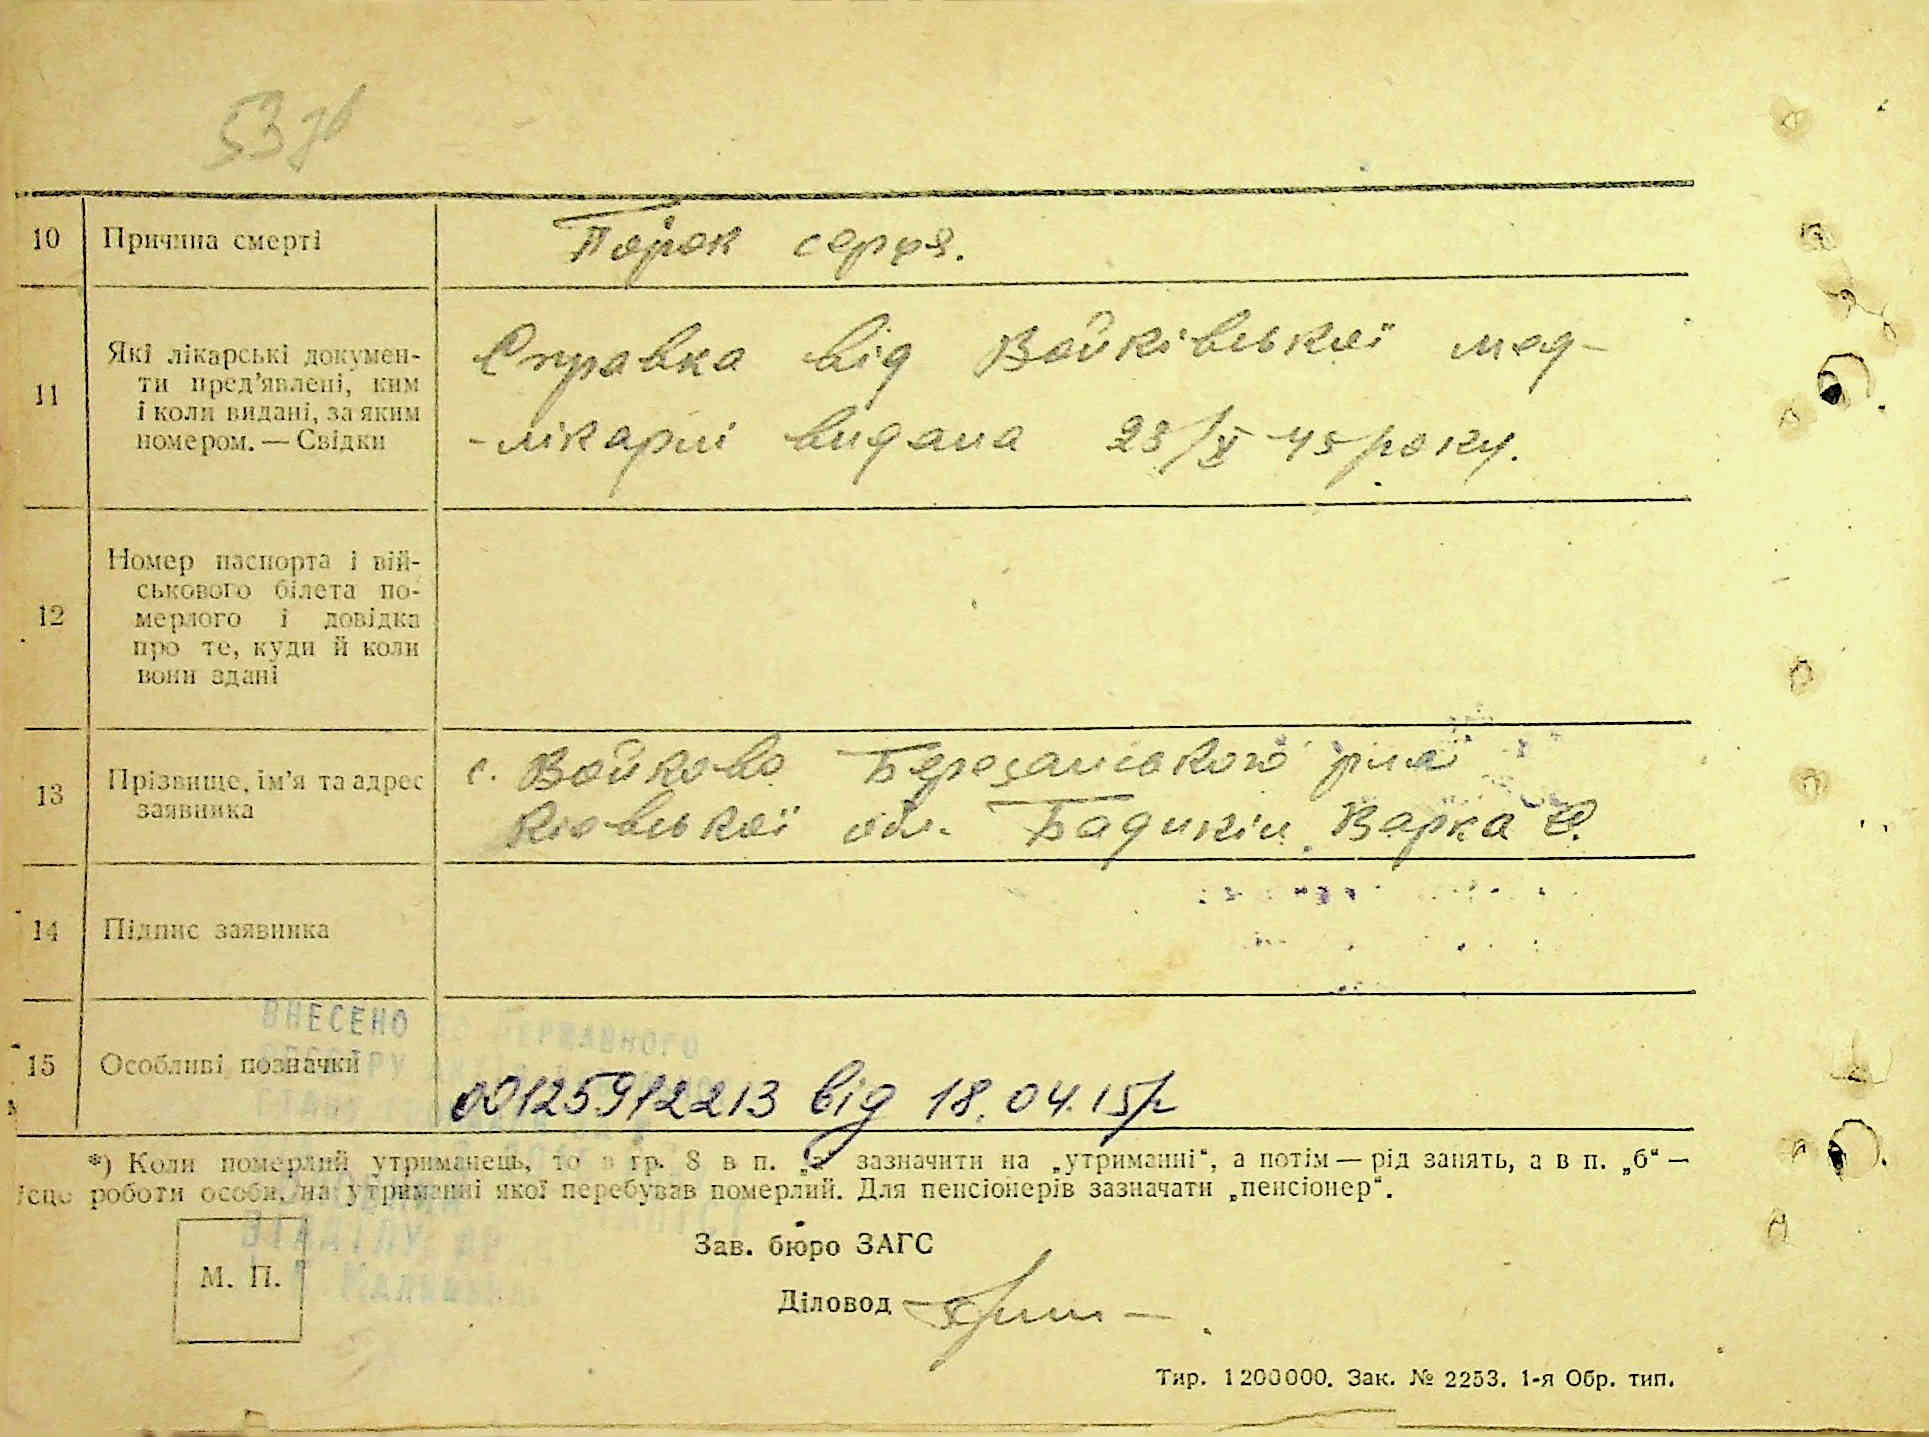 53 зв
10 Причина смерті Порок серця.
11 Які лікарські докумен-
ти пред'явлені, ким
і коли видані, за яким
номером. — Свідки
Справка від Войківської мед-
-лікарні видана 23/X 45 року.
12 Номер паспорта і вій-
ськового білета по-
мерлого і довідка
про те, куди й коли
вони здані
13 Прізвище, ім'я та адрес
заявника
с. Войково Березанського р-на
Київської обл. Бадикін Варка
14 Підпис заявника
ВНЕСЕНО ДЕРЖАВНОГО
15 Особливі позначки
00125912213 від 18.04.15р
*) Коли померлий утриманець, то в гр. 8 в п. зазначити на „утриманні“, а потім — рід занять, а в п. „б“ —
ісце роботи особи, на утриманні якої перебував померлий. Для пенсіонерів зазначати „пенсіонер“.
ВІДДІЛУ
М. П.
Зав. бюро ЗАГС
Діловод
Тир. 1200000. Зак. № 2253. 1-я Обр. тип.